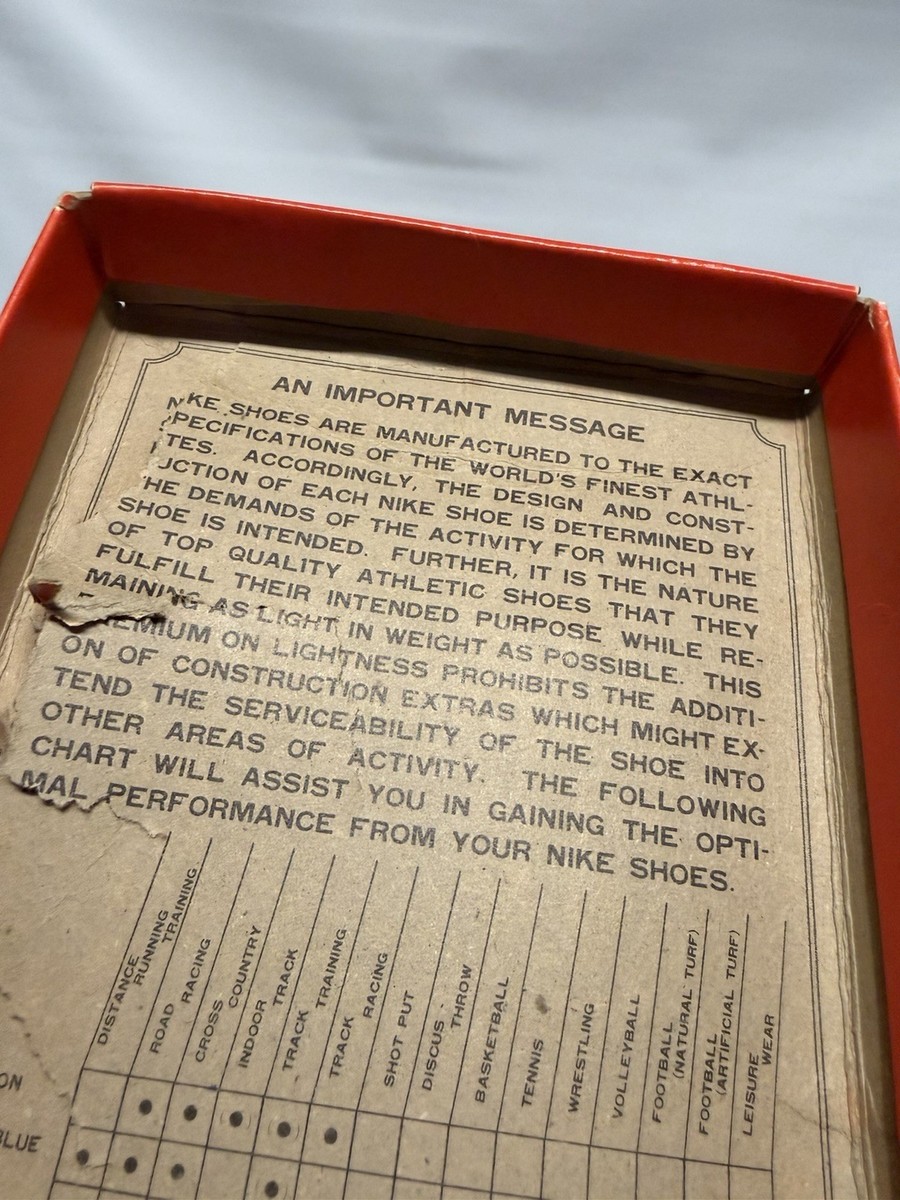 AN IMPORTANT MESSAGE
KE SHOES ARE MANUFACTURED TO THE EXACT
PECIFICATIONS OF THE WORLD'S FINEST ATHL-
TES. ACCORDINGLY, THE DESIGN AND CONST-
UCTION OF EACH NIKE SHOE IS DETERMINED BY
HE DEMANDS OF THE ACTIVITY FOR WHICH THE
SHOE IS INTENDED. FURTHER, IT IS THE NATURE
OF TOP QUALITY ATHLETIC SHOES THAT THEY
FULFILL THEIR INTENDED PURPOSE WHILE RE-
MAINING AS LIGHT IN WEIGHT AS POSSIBLE. THIS
EMIUM ON LIGHTNESS PROHIBITS THE ADDITI-
ON OF CONSTRUCTION EXTRAS WHICH MIGHT EX-
TEND THE SERVICEABILITY OF THE SHOE INTO
OTHER AREAS OF ACTIVITY. THE FOLLOWING
CHART WILL ASSIST YOU IN GAINING THE OPTI-
MAL PERFORMANCE FROM YOUR NIKE SHOES.
DISTANCE
RUNNING
TRAINING
ROAD
RACING
CROSS
COUNTRY
INDOOR
TRACK
TRACK
TRAINING
TRACK
RACING
SHOT PUT
DISCUS
THROW
BASKETBALL
TENNIS
WRESTLING
VOLLEYBALL
FOOTBALL
(NATURAL TURF)
FOOTBALL
(ARTIFICIAL TURF)
LEISURE
WEAR
ON
BLUE